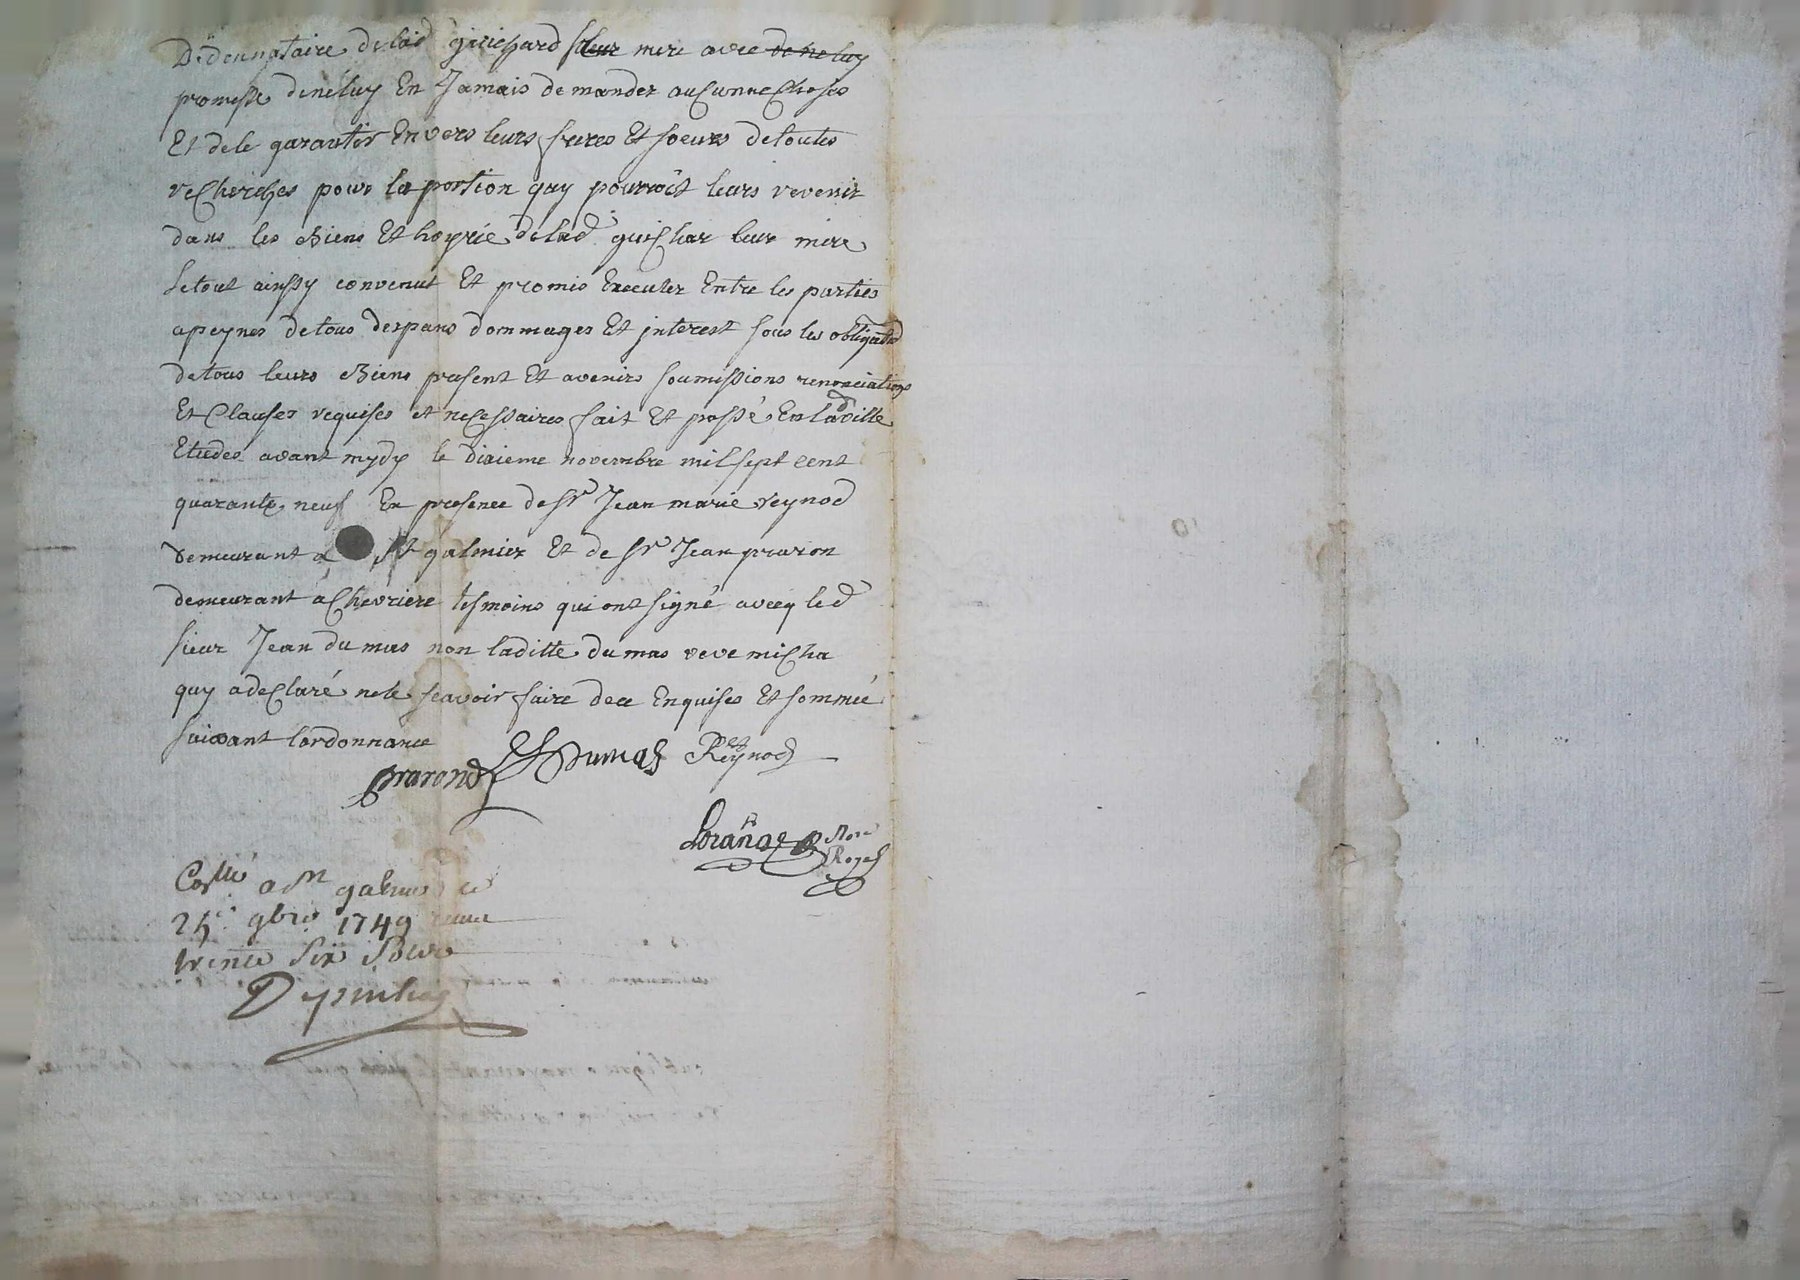 Dedonnataire delad guichard leur mere avec de ne luy
promesse deneluy En Jamais demander aucunne Choses
Et dele garantir Envers leurs freres Et soeurs detoutes
recherches pour la portion quy pourroit leurs revenir
dans les Biens Et hoyrié delad guichar leur mere
Letout ainssy convenut Et promis Executer Entre les parties
apeynes detous despans dommages Et interest sous les obligatº
detous leurs Biens present Et avenirs soumissions renonciations
Et Clauses requises et necessaires fait Et passé En lad ville
Etudes avant mydy le dixieme novembre mil sept cent
quarante neuf En presence de Sr Jean marie reynod
demeurant a St galmier Et de Sr Jean praron
demeurant a Chevriere tesmoins qui ont signé avecq led
sieur Jean dumas non laditte dumas veve micha
quy adeclaré nele scavoir faire dece Enquises Et sommeé
suivant lordonnance
prarond Dumas Reynod
Not
Royal
a St galmier ce
25e 9bre 1749
trente six sols